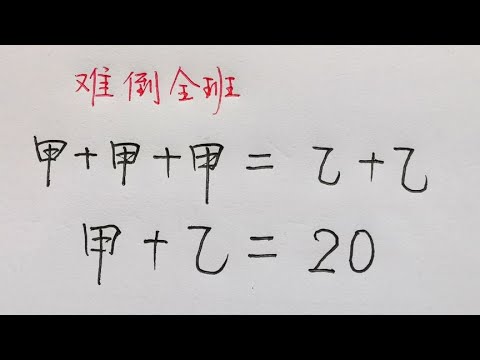 难倒全班
甲+甲+甲=乙+乙
甲+乙=20